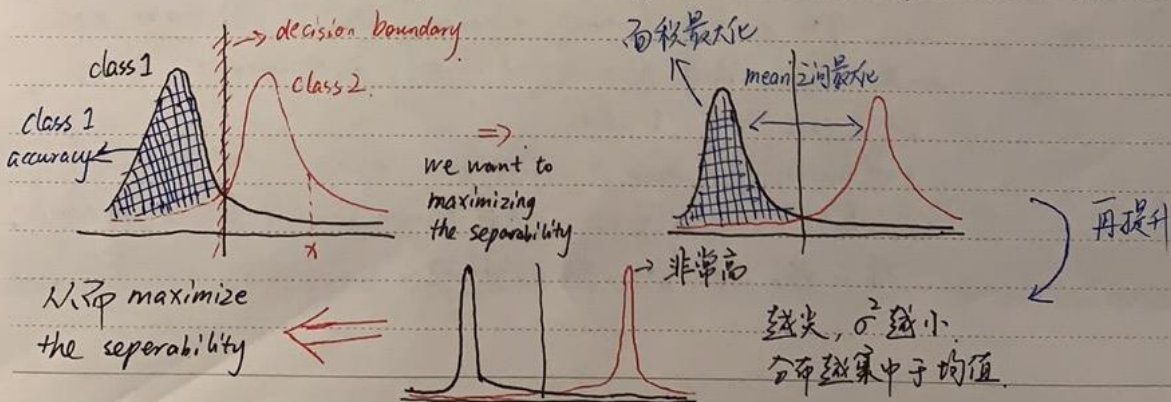 decision boundary.
class 1
class 2.
class 1
accuracy
x
⇒.
we want to
maximizing
the separability
面积最大化
mean之间最大化
再提升
非常高
越尖, σ² 越小.
分布越集中于均值.
从而 maximize
the seperability